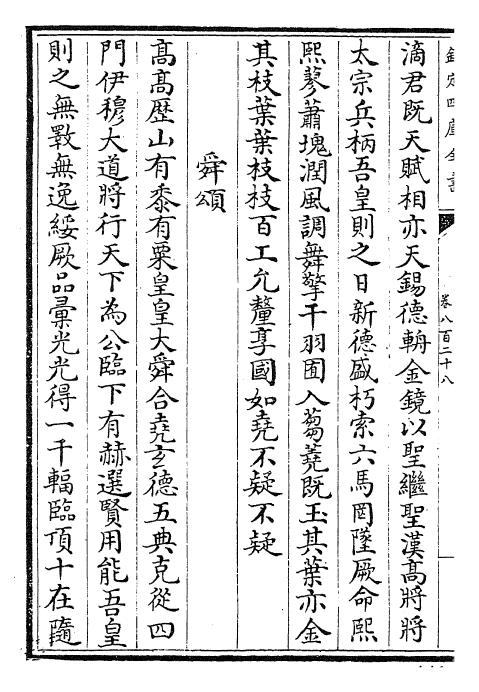 欽定四庫全書
卷八百二十八
滴君既天賦相亦天錫德輶金鏡以聖繼聖漢髙將將
太宗兵柄吾皇則之日新德盛朽索六馬罔墜厥命熙
熙蓼蕭塊潤風調舞擎干羽囿入芻蕘既玉其葉亦金
其枝葉葉枝枝百工允釐享國如堯不疑不疑
舜頌
髙髙歴山有黍有粟皇皇大舜合堯玄德五典克從四
門伊穆大道將行天下為公臨下有赫選賢用能吾皇
則之無斁無逸綏厥品彚光光得一千輻臨頂十在隨